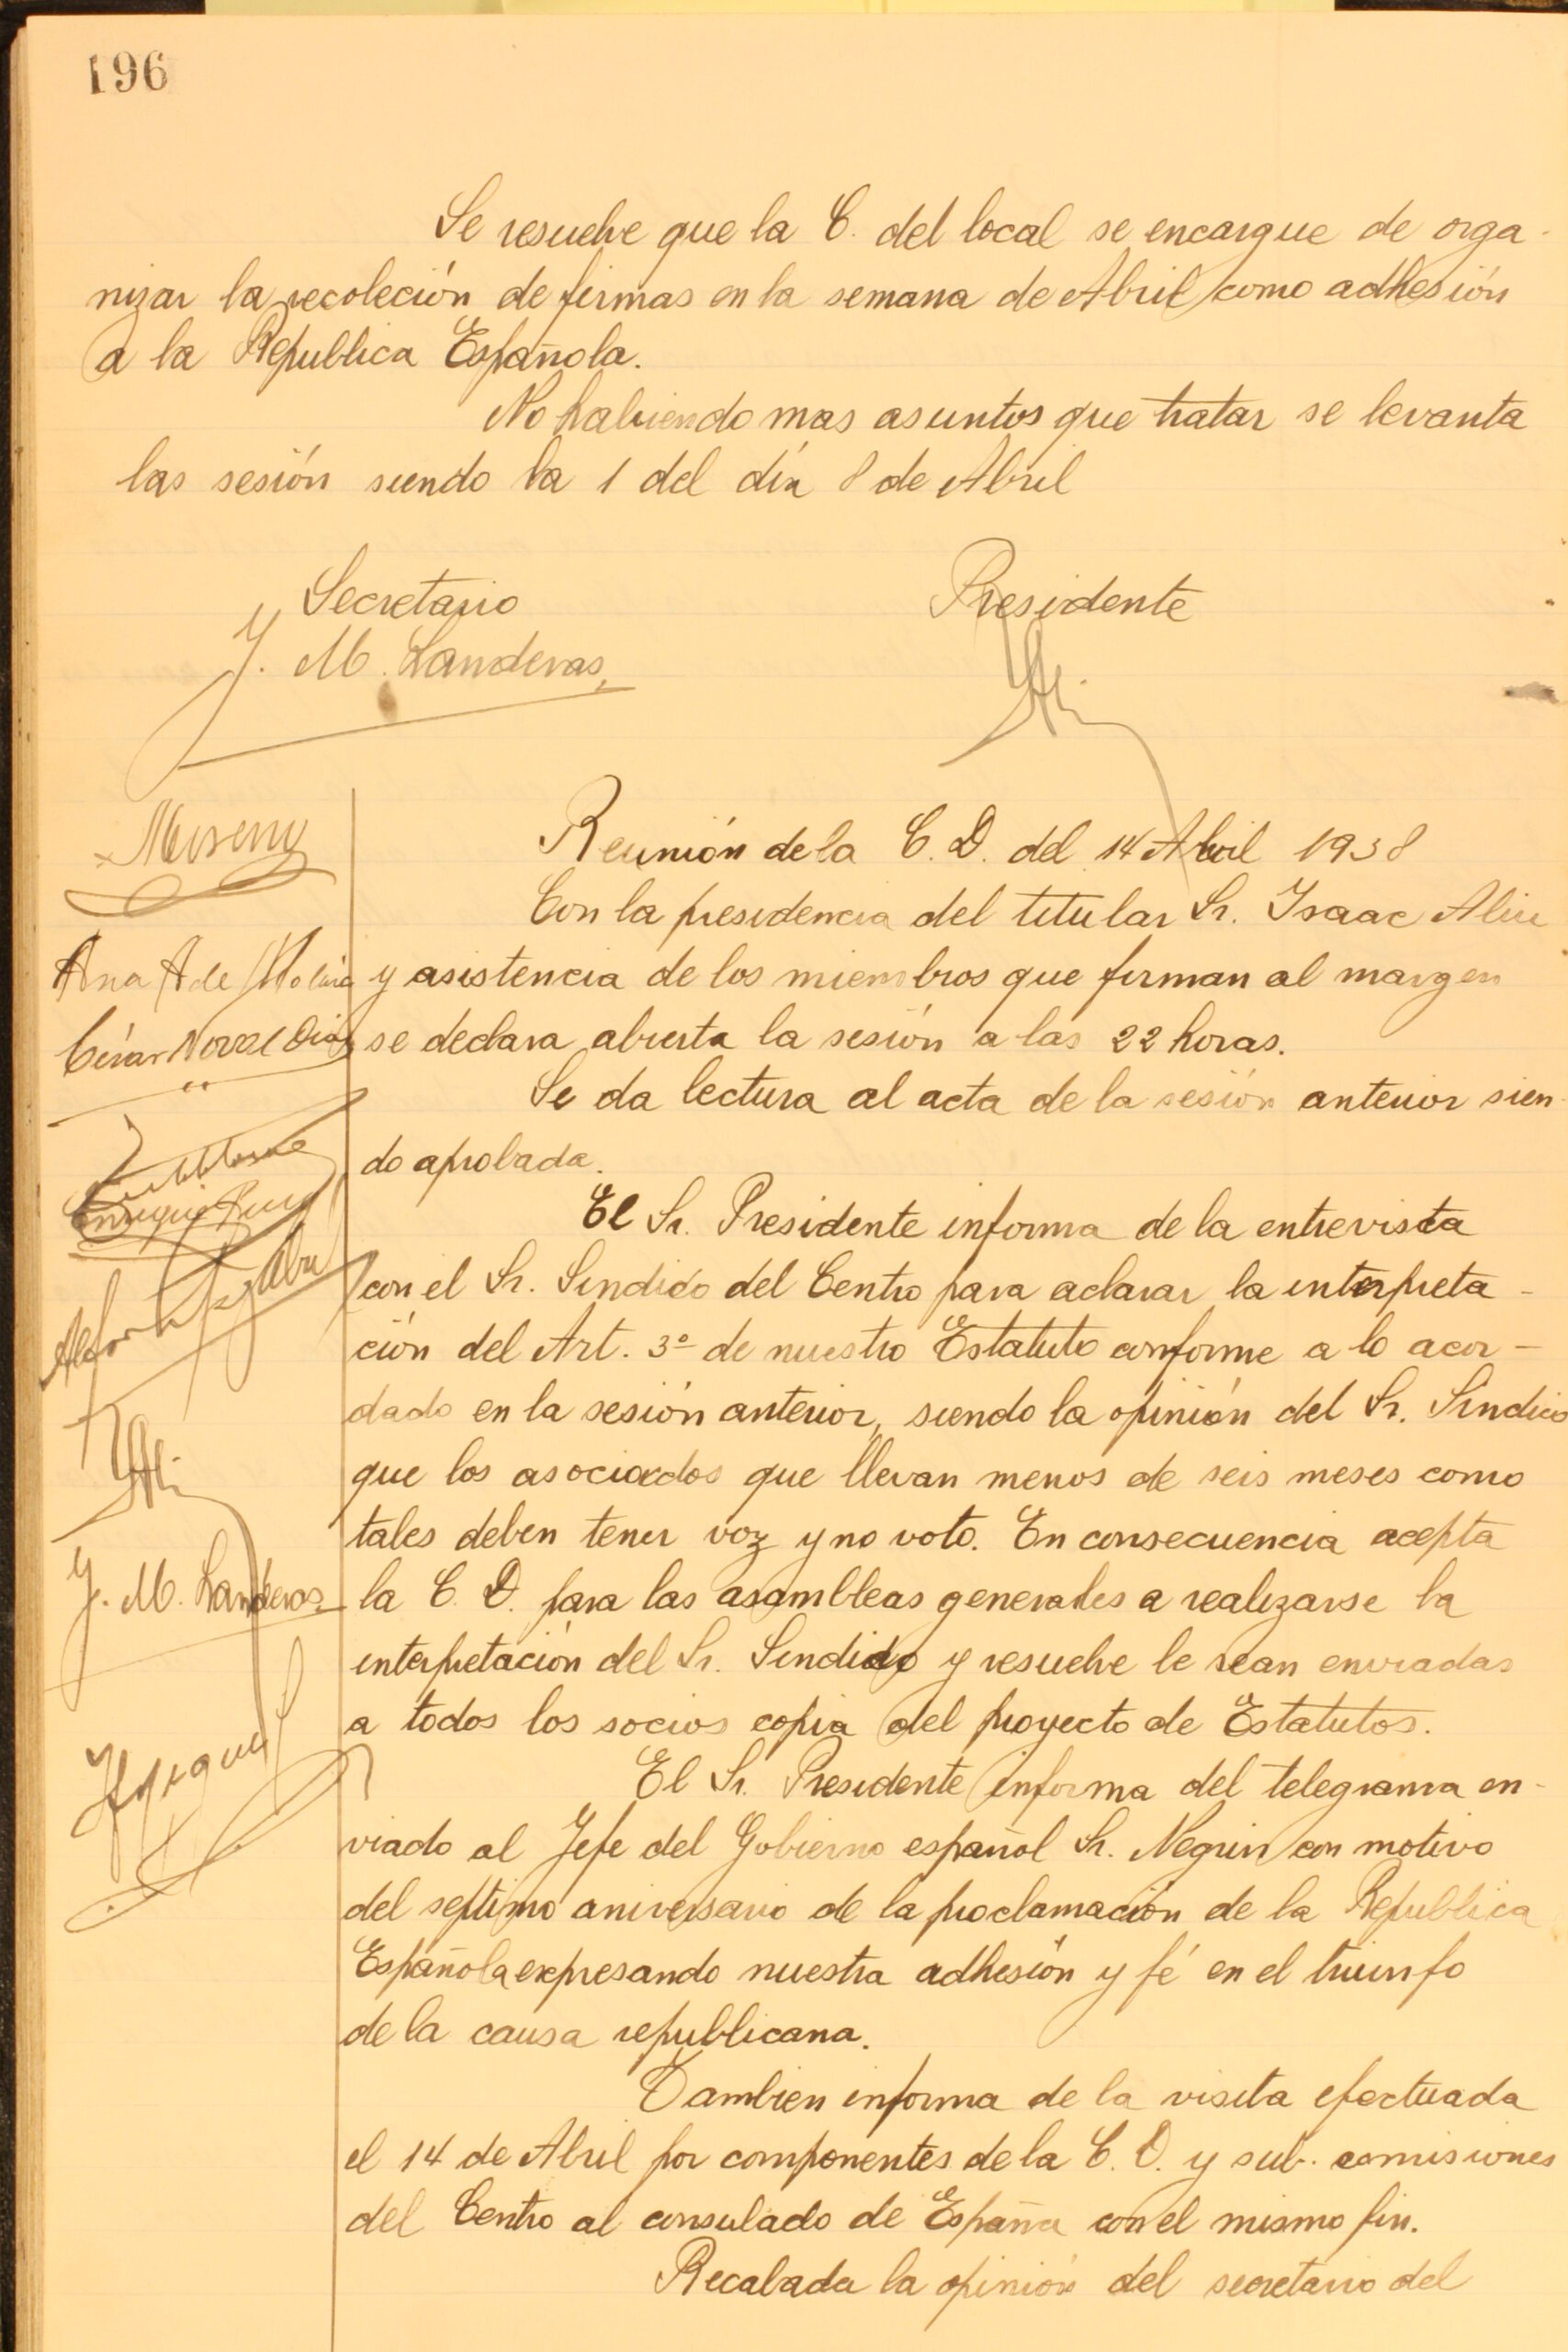 196
Se resuelve que la C. del local se encargue de orga-
nizar la recoleción de firmas en la semana de Abril como adhesión
a la Republica Española.
No habiendo mas asuntos que tratar se levanta
las sesión siendo la 1 del día 8 de Abril
Secretario Presidente
J. M. Landeras
Moreno
Reunión de la C. D. del 14 Abril 1938
Con la presidencia del titular Sr. Isaac
Ana A de Molina
y asistencia de los miembros que firman al margen
César
se declara abierta la sesión a las 22 horas.
Se da lectura al acta de la sesión anterior sien-
do aprobada.
Enrique
El Sr. Presidente informa de la entrevista
con el Sr. Sindico del Centro para aclarar la interpreta-
ción del Art. 3º de nuestro Estatuto conforme a lo acor-
dado en la sesión anterior, siendo la opinión del Sr. Sindico
que los asociados que llevan menos de seis meses como
tales deben tener voz y no voto. En consecuencia acepta
J. M. Landeras
la C. D. para las asambleas generales a realizarse la
interpretación del Sr. Sindico y resuelve le sean enviadas
a todos los socios copia del proyecto de Estatutos.
El Sr. Presidente informa del telegrama en-
viado al Jefe del Gobierno español Sr. Negrin con motivo
del septimo aniversario de la proclamación de la Republica
Española expresando nuestra adhesión y fé en el triunfo
de la causa republicana.
Tambien informa de la visita efectuada
el 14 de Abril por componentes de la C. D. y sub. comisiones
del Centro al consulado de España con el mismo fin.
Recabada la opinión del secretario del